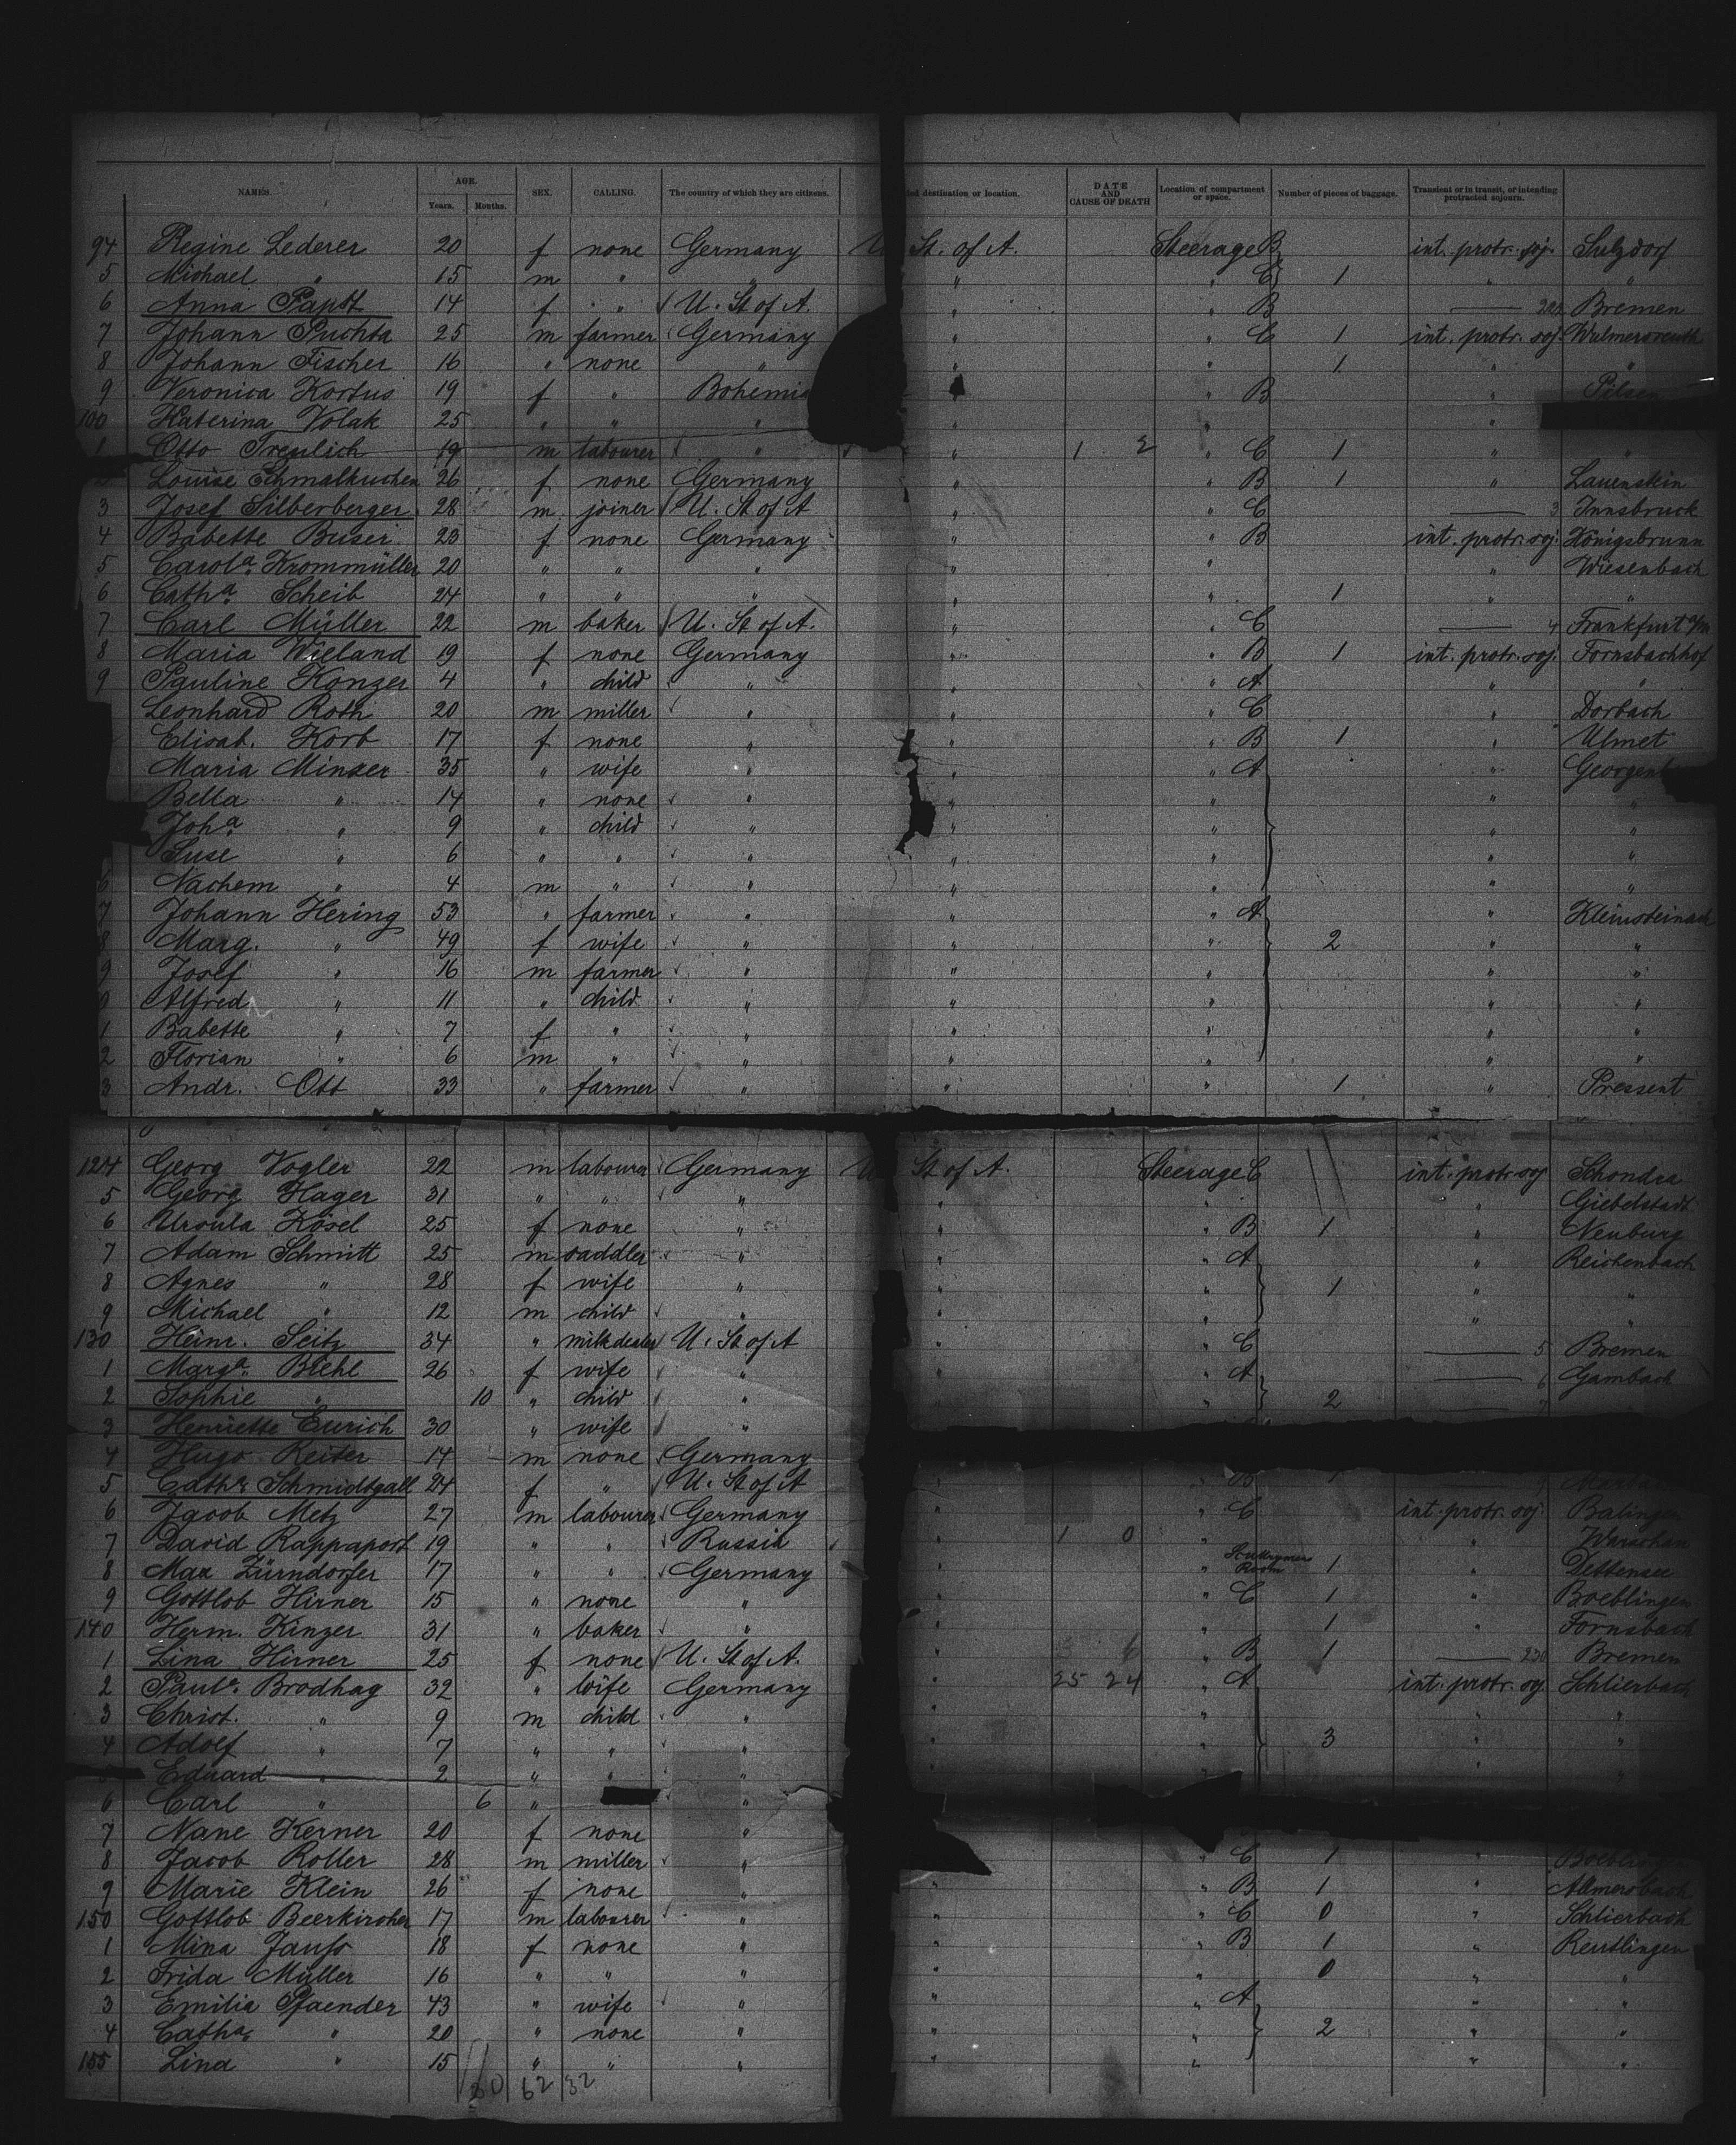 NAMES. AGE. Years. Months. SEX. CALLING. The country of which they are citizens. destination or location. DATE AND CAUSE OF DEATH Location of compartment or space. Number of pieces of baggage. Transient or in transit, or intending protracted sojourn.
94 Regine Lederer 20 f none Germany U St. of A. Steerage B int. protr. soj. Sulzdorf
5 Michael " 15 m " " " " C 1 " "
6 Anna Papst 14 f " U. St of A. " " B Bremen
7 Johann Puchta 25 m farmer Germany " " C 1 int. protr. soj. Wulmersreuth
8 Johann Fischer 16 " none " " 1 " "
9 Veronica Kortus 19 f " Bohemia " B " Pilsen
100 Katerina Volak 25 " " " " " "
1 Otto Treulich 19 m labourer " " 1 2 " C 1 " "
Louise Schmalkuchen 26 f none Germany " " B 1 " Lauenstein
3 Josef Silberberger 28 m joiner U. St of A " " C 3 Innsbruck
4 Babette Buser 23 f none Germany " " B int. protr. soj. Königsbrunn
5 Carola. Krommüller 20 " " " " " " Wiesenbach
6 Catha. Scheib 24 " " " " " 1 " "
7 Carl Müller 22 m baker U. St of A. " " C 4 Frankfurt a/m
8 Maria Wieland 19 f none Germany " " B 1 int. protr. soj. Fornsbachhof
9 Pauline Konzer 4 " child " " " A " "
Leonhard Roth 20 m miller " " " C " Dorbach
Elisab. Korb 17 f none " " " B 1 " Ulmet
Maria Minzer 35 " wife " " " A "
Bella " 14 " none " " " "
Joha " 9 " child " " " " "
Suse " 6 " " " " " " "
6 Nachem " 4 m " " " " " "
7 Johann Hering 53 " farmer " " " A " Kleinsteinach
8 Marg. " 49 f wife " " " 2 " "
9 Josef " 16 m farmer " " " " "
0 Alfred " 11 " child " " " " "
1 Babette " 7 f " " " " " "
2 Florian " 6 m " " " " " "
3 Andr. Ott 33 " farmer " " " 1 " Pressent
124 Georg Vogler 22 m labourer Germany U St of A. Steerage C int. protr. soj Schondra
5 Georg Hager 31 " " " " " " Giebelstadt
6 Ursula Kösel 25 f none " " " B 1 " Neuburg
7 Adam Schmitt 25 m saddler " " " A " Reichenbach
8 Agnes " 28 f wife " " " 1 " "
9 Michael " 12 m child " " " " "
130 Heinr. Seitz 34 " milkdealer U. St of A " " C 5 Bremen
1 Marga. Biehl 26 f wife " " " A 6 Gambach
2 Sophie " 10 " child " " 2
3 Henriette Eurich 30 " wife "
4 Hugo Reiter 14 m none Germany
5 Catha Schmidtgall 24 f " U. St of A B
6 Jacob Metz 27 m labourer Germany " " C int. protr. soj. Balingen
7 David Rappaport 19 " " Russia " 1 0 " " Warschau
8 Max Zürndorfer 17 " " Germany " " Room 1 " Dettensee
9 Gottlob Hirner 15 " none " " " C 1 " Boeblingen
140 Herm. Kinzer 31 " baker " " " 1 " Fornsbach
1 Lina Hirner 25 f none U. St of A. " 6 " B 1 230 Bremen
2 Paula. Brodhag 32 " wife Germany " 25 24 " A int. protr. soj. Schlierbach
3 Christ. " 9 m child " " " " "
4 Adolf " 7 " " " " " 3 " "
Eduard " 2 " " " " "
6 Carl " 6 " "
7 Nane Kerner 20 f none "
8 Jacob Roller 28 m miller " " C 1 "
9 Marie Klein 26 f none " " " B 1 " Allmersbach
150 Gottlob Beerkircher 17 m labourer " " " C 0 " Schlierbach
1 Mina Jauss 18 f none " " " B 1 " Reutlingen
2 Frida Müller 16 " " " " " 0 " "
3 Emilia Pfaender 43 " wife " " " A " "
4 Catha. " 20 " none " " " 2 " "
155 Lina " 15 " " " " " " "
62 32